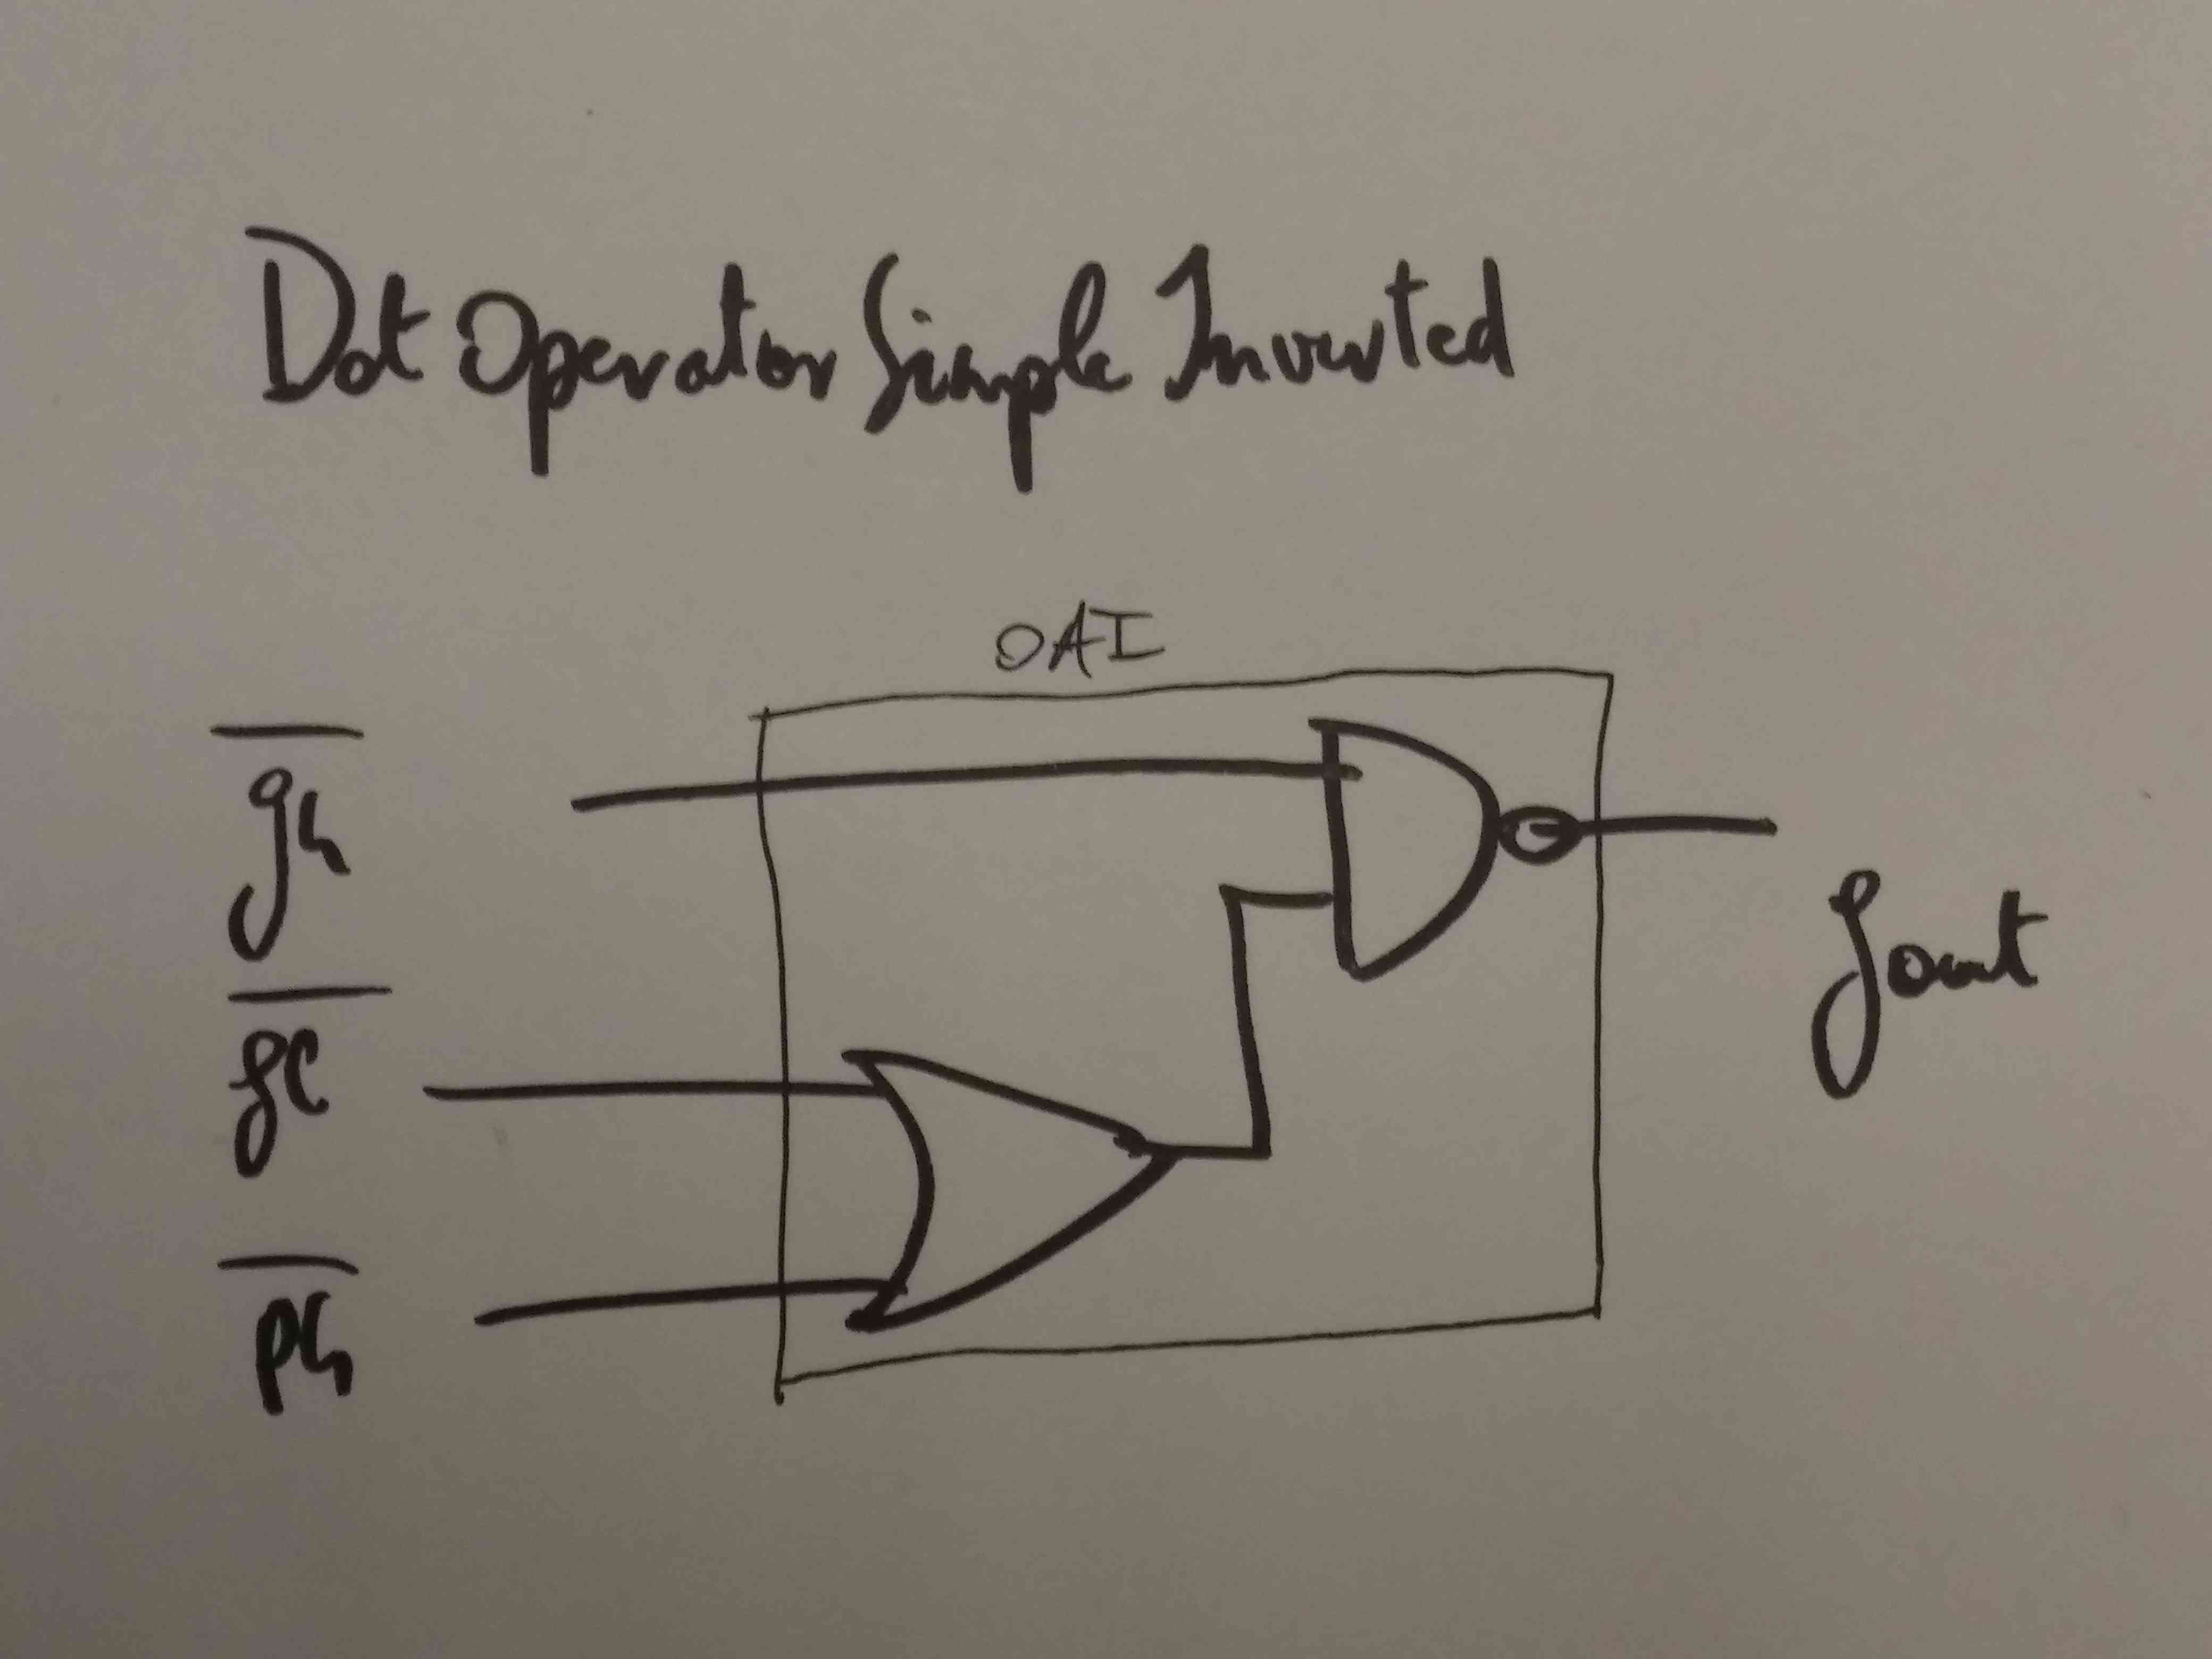 Dot Operator Simple Inverted
OAI
g̅h̅
g̅l̅
p̅h̅
gout